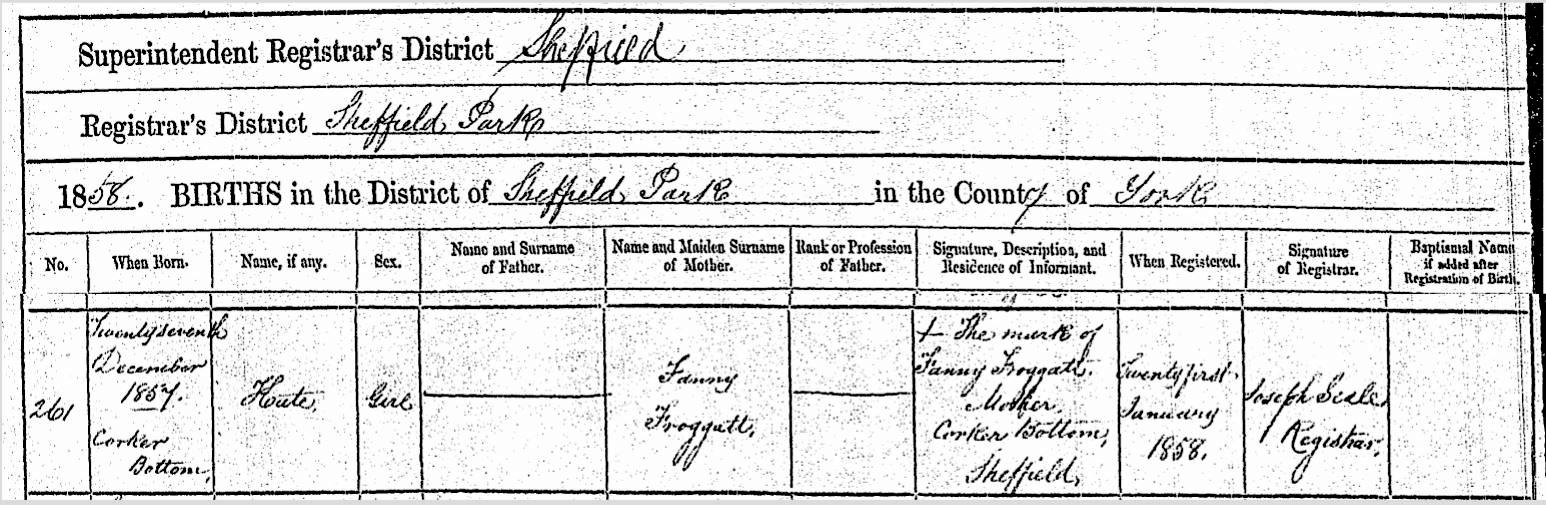 Superintendent Registrar's District Sheffield
Registrar's District Sheffield Park
1858. BIRTHS in the District of Sheffield Park in the County of York
No. When Born. Name, if any. Sex. Name and Surname of Father. Name and Maiden Surname of Mother. Rank or Profession of Father. Signature, Description, and Residence of Informant. When Registered. Signature of Registrar. Baptismal Name if added after Registration of Birth.
261
Twentyseventh
December
1857.
Corker
Bottom,
Kate,
Girl
Fanny
Froggatt,
+ The mark of
Fanny Froggatt.
Mother,
Corker Bottom,
Sheffield,
Twentyfirst
January
1858.
Joseph
Registrar,